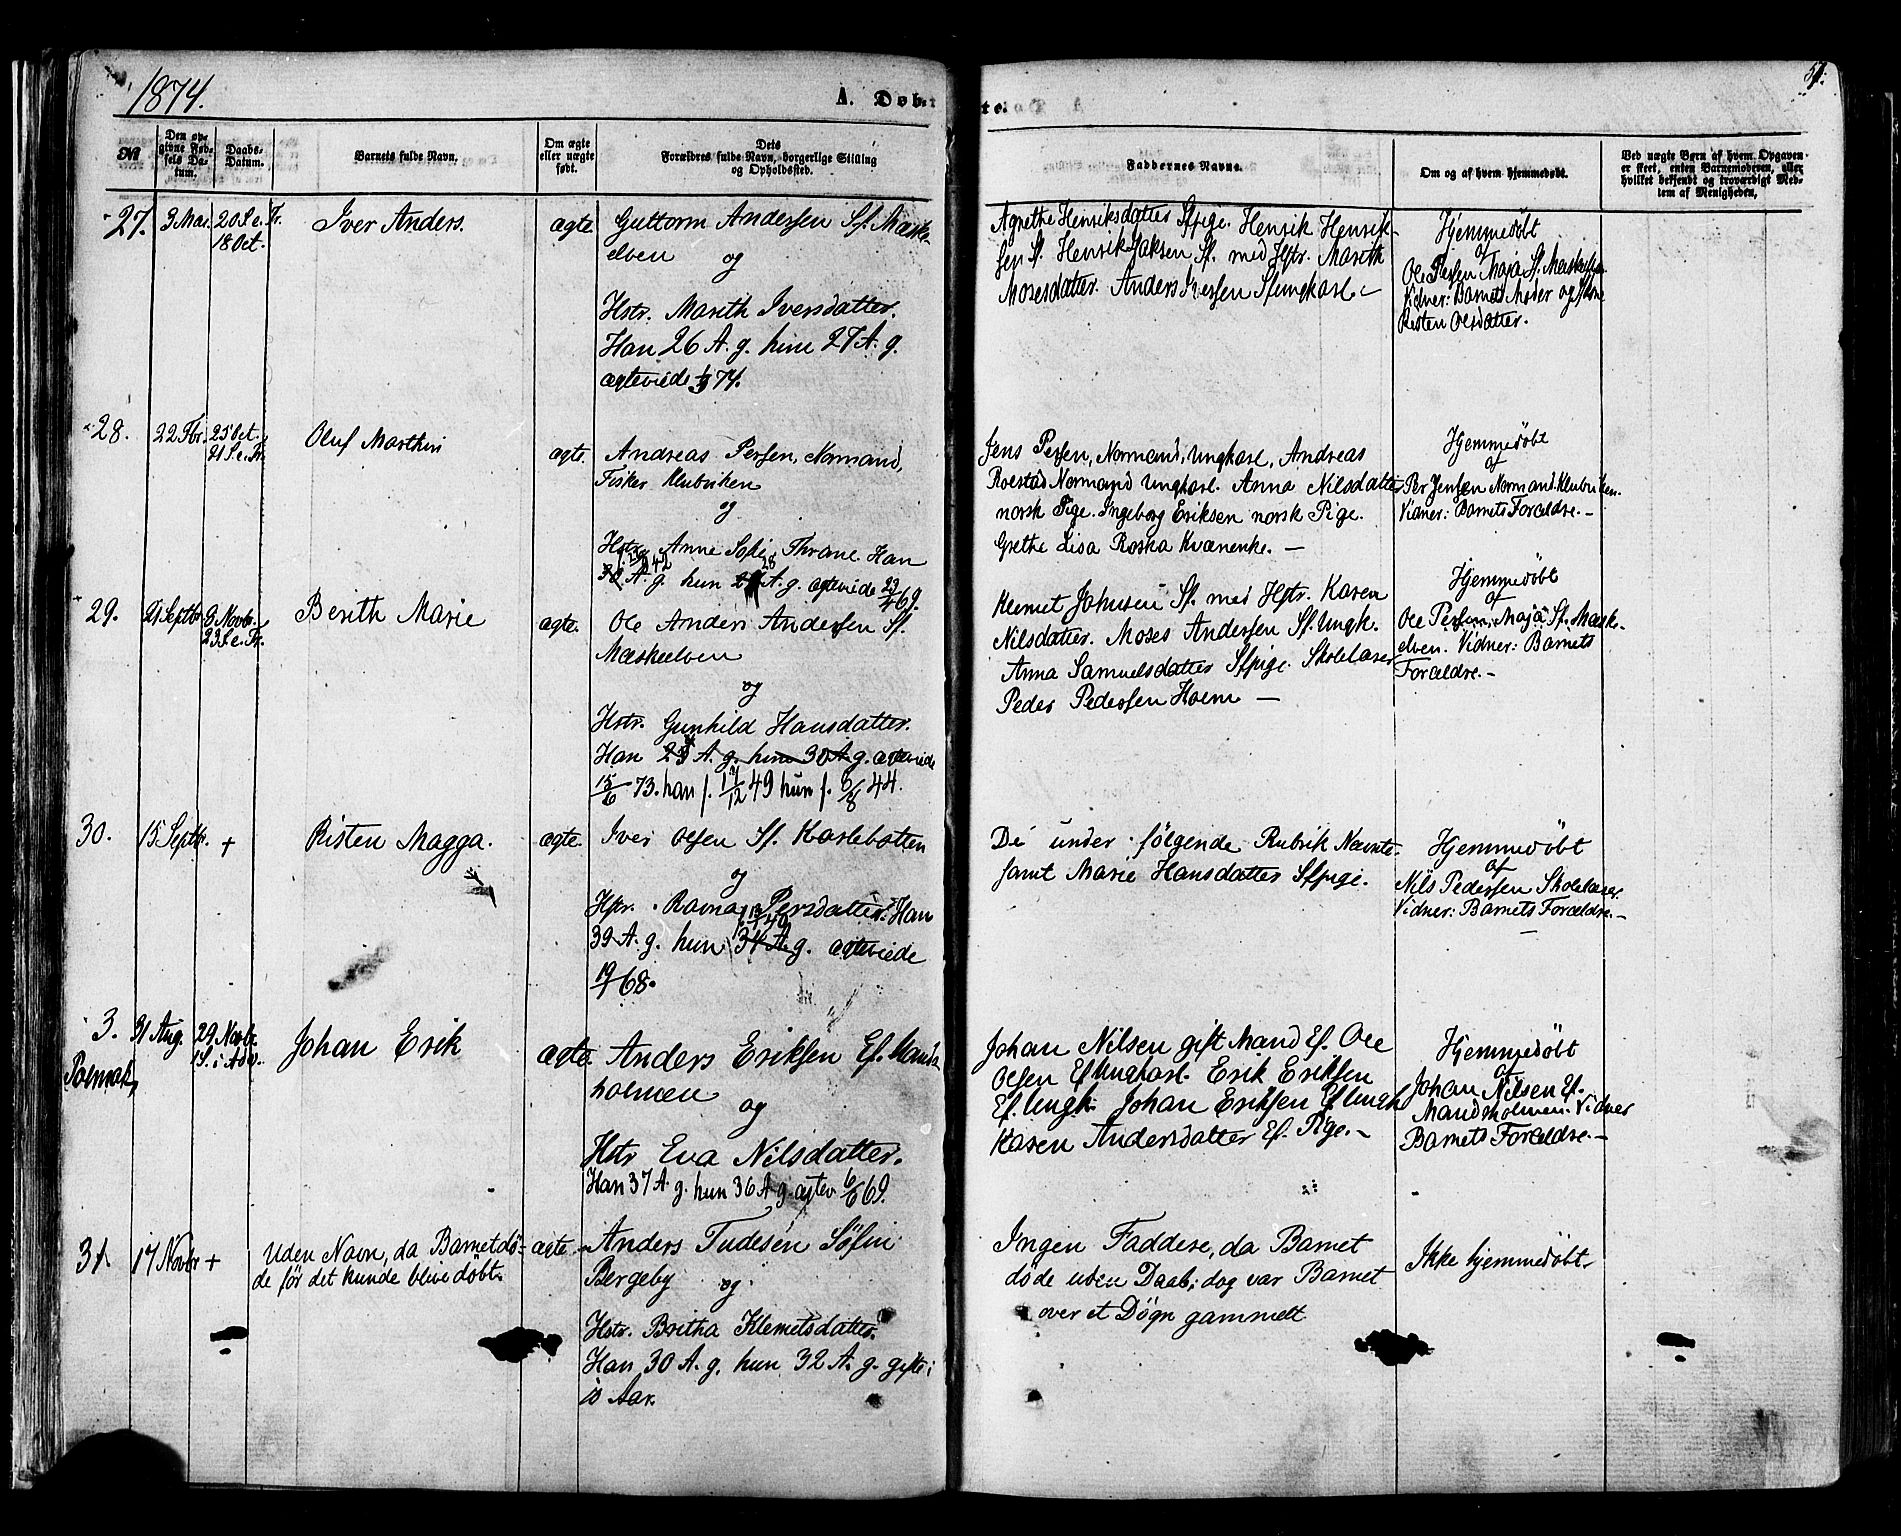 1874.
A. Døbte.
51.
No
Den opgivne Fødsels Datum.
Daabs-Datum.
Barnets fulde Navn.
Om ægte eller uægte født.
Dets Forældres fulde Navn, borgerlige Stilling og Opholdssted.
Faddernes Navne.
Om og af hvem hjemmedøbt.
Ved uægte Børn af hvem Opgaven er skeet, enten Barnemoderen, eller hvilket bekjendt og troværdigt Medlem af Menigheden.
27.
3 Mar.
20 S. e. Tr.
18 Oct.
Iver Anders.
ægte
Guttorm Andersen Sf. Mæske-
elven
og
Hstr. Marith Iversdatter.
Han 26 A. g. hun 27 A. g.
ægteviede 74.
Agnethe Henriksdatter Sfpige. Henrik Henrik-
sen Sf. Henrik Isaksen Sf. med Hstr. Marith
Mosesdatter. Anders Iversen Sfungkarl. -
Hjemmedøbt
af
Ole Persen Maja Sf. Mæskelven
Vidner: Barnets Moder og
Risten Olsdatter.
28.
22 Fbr.
25 Oct.
21 S. e. Tr.
Oluf Marthin
ægte.
Andreas Persen, Normand,
Fisker Klubviken
og
Hstr. Anne Sofie Thrane. Han
30 A. g. hun A. g. ægteviede 69.
Jens Persen, Normand, Ungkarl. Andreas
Roestad Normand Ungkarl. Anna Nilsdatter
norsk Pige. Ingeborg Eriksen norsk Pige.
Grethe Lisa Roska Kvænenke. —
Hjemmedøbt
af
Per Jensen Normand Klubviken.
Vidner: Barnets Forældre. -
29.
21 Septbr.
9 Novbr.
23 S. e. Tr.
Berith Marie
ægte.
Ole Anders Andersen Sf.
Mæskeelven
og
Hstr. Gunhild Hansdatter.
Han 25 A. g. hun 30 A. g. ægteviede
15/6 73. han f. 17/12 49 hun f. 6/8 44.
Klemet Johnsen Sf. med Hstr. Karen
Nilsdatter. Moses Andersen Sf. Ungk.
Anna Samuelsdatter Sfpige. Skolelærer
Peder Pedersen Hoem —
Hjemmedøbt
af
Ole Persen Maja Sf. Mæsk-
elven. Vidner: Barnets
Forældre. -
30.
15 Septbr.
+
Risten Magga.
ægte.
Iver Olsen Sf. Karlebotten
og
Hstr. Ravna Persdatter. Han
39 A. g. hun 34 A. g. ægteviede
19/7 68.
De i under følgende Rubrik Nævnte
samt Marie Hansdatter Sfpige.
Hjemmedøbt
af
Nils Pedersen Skolelærer.
Vidner: Barnets Forældre. -
3.
Polmak,
31 Aug.
29 Novbr.
1 S. i Adv.
Johan Erik
ægte.
Anders Eriksen Ef. Mands-
holmen
og
Hstr Eva Nilsdatter.
Han 37 A. g. hun 36 A. g. ægtev. 6/6 69.
Johan Nilsen gift Mand Ef. Ole
Olsen Ef Ungkarl. Erik Eriksen
Ef. Ungk. Johan Eriksen Ef Ungk
Karen Andersdatter Ef. Pige. -
Hjemmedøbt
af
Johan Nilsen Ef.
Mandsholmen. Vidner
Barnets Forældre. -
31.
17 Novbr
+
Uden Navn, da Barnet dø-
de før det kunde blive døbt.
ægte.
Anders Tudesen Søfin
Bergeby
og
Hstr. Britha Klemetsdatter.
Han 30 A. g. hun 32 A. g. gifte i
10 Aar.
Ingen Faddere, da Barnet
døde uden Daab; dog var Barnet
over et Døgn gammelt
Ikke hjemmedøbt.